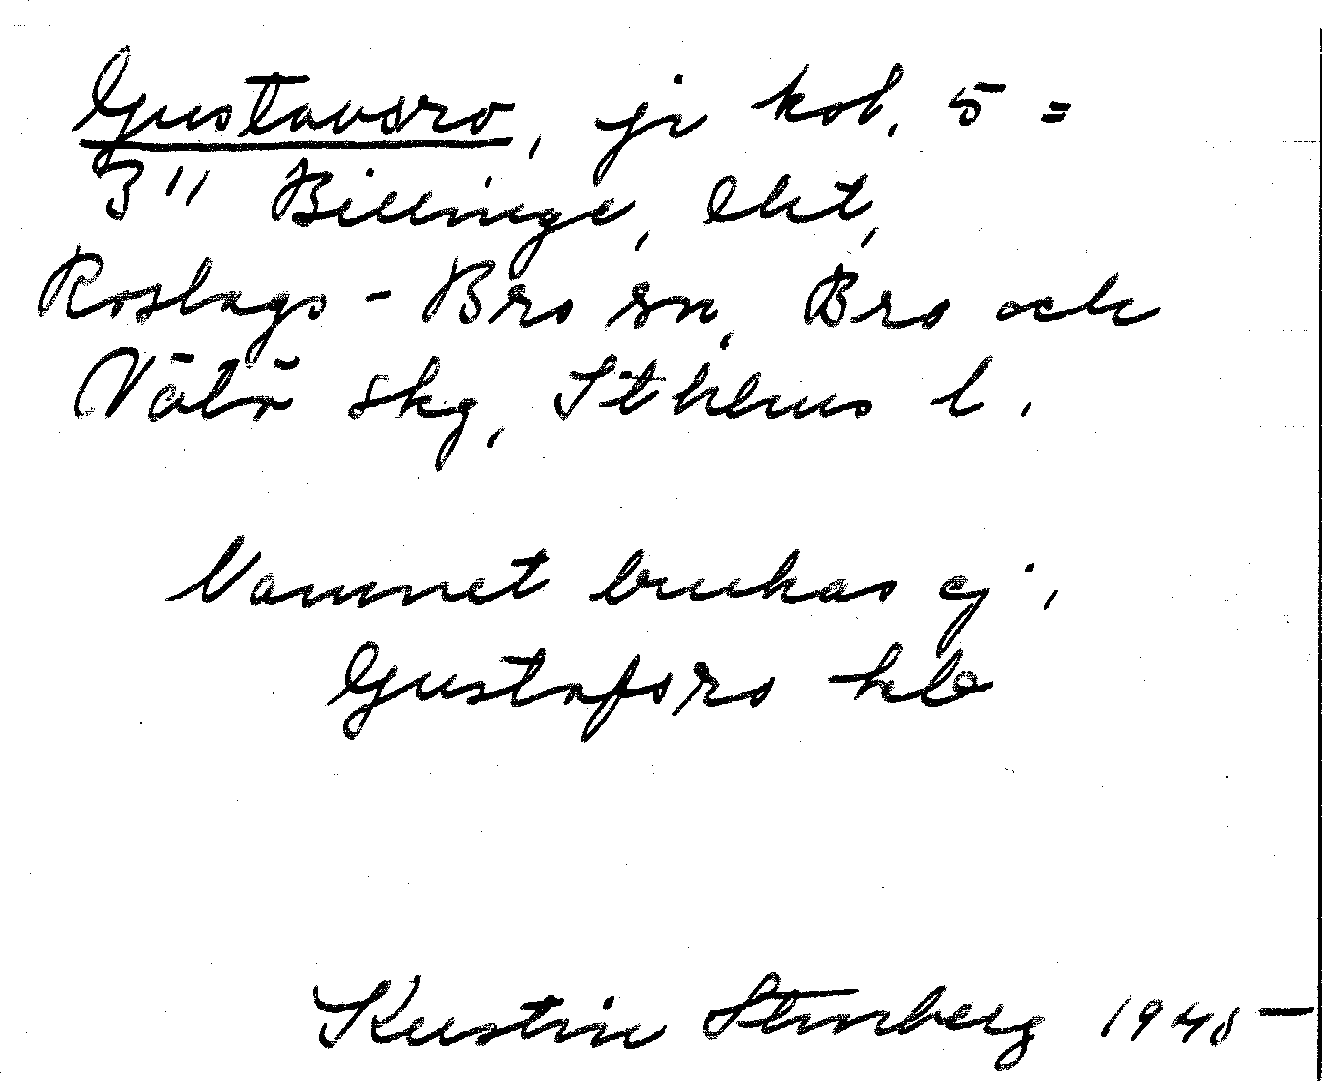 Gustavsro, jr kob. 5 =
3'' Billinge, lht,
Roslags-Bro sn, Bro och
Vätö skg, Sthlms l.
Namnet brukas ej.
Gustafsro hb
Kerstin Stenberg 1945